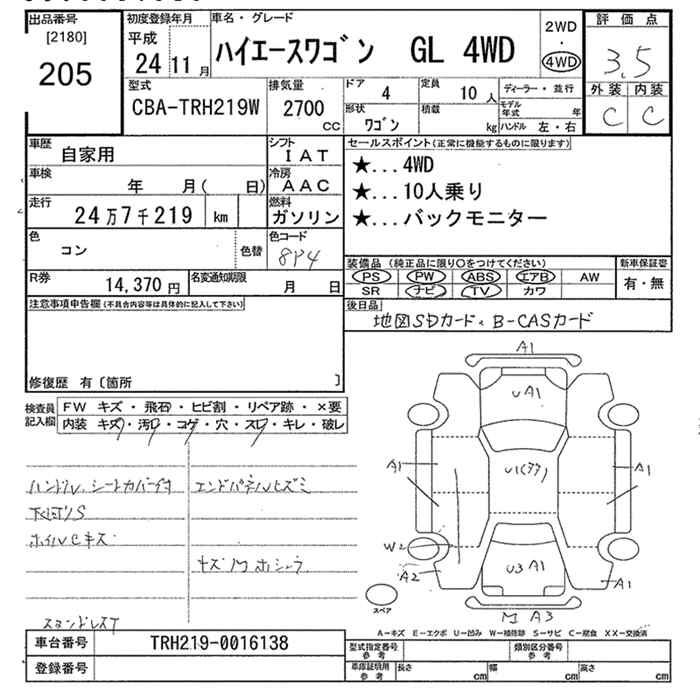 出品番号
[2180]
205
初度登録年月
平成
24 11 月
車名・グレード
ハイエースワゴン GL 4WD
2WD
・
4WD
評価点
3.5
外装 内装
C C
型式
CBA-TRH219W
排気量
2700
cc
ドア 4
定員 10 人
形状 ワゴン
積載 kg
ディーラー・並行
モデル年式 年
ハンドル 左・右
車歴 自家用
シフト IAT
車検 年 月( 日)
冷房 AAC
走行 24万7千219 km
燃料 ガソリン
色 コン
色替
色コード
8P4
R券 14,370 円
名変通知期限 月 日
セールスポイント(正常に機能するものに限ります)
★...4WD
★...10人乗り
★...バックモニター
装備品(純正品に限り○をつけてください)
PS PW ABS エアB AW
SR ナビ TV カワ
新車保証書
有・無
後日品
地図SDカード、B-CASカード
注意事項申告欄(不具合内容等は具体的に記入して下さい)
修復歴 有〔箇所 〕
検査員記入欄
FW キズ・飛石・ヒビ割・リペア跡・×要
内装 キズ・汚レ・コゲ・穴・スレ・キレ・破レ
ハンドル、シートカバー付
エンドパネルヒズミ
下回りS
ホイルCキズ
キズMホシュウ
A1
UA1
A1
U1(ララ)
A1
W2
A2
U3 A1
A1
M A3
スペア
A−キズ E−エクボ U−凹み W−補修跡 S−サビ C−腐食 XX−交換済
車台番号 TRH219-0016138
登録番号
型式指定番号 参考
類別区分番号 参考
車庫証明用 参考
長さ cm
幅 cm
高さ cm